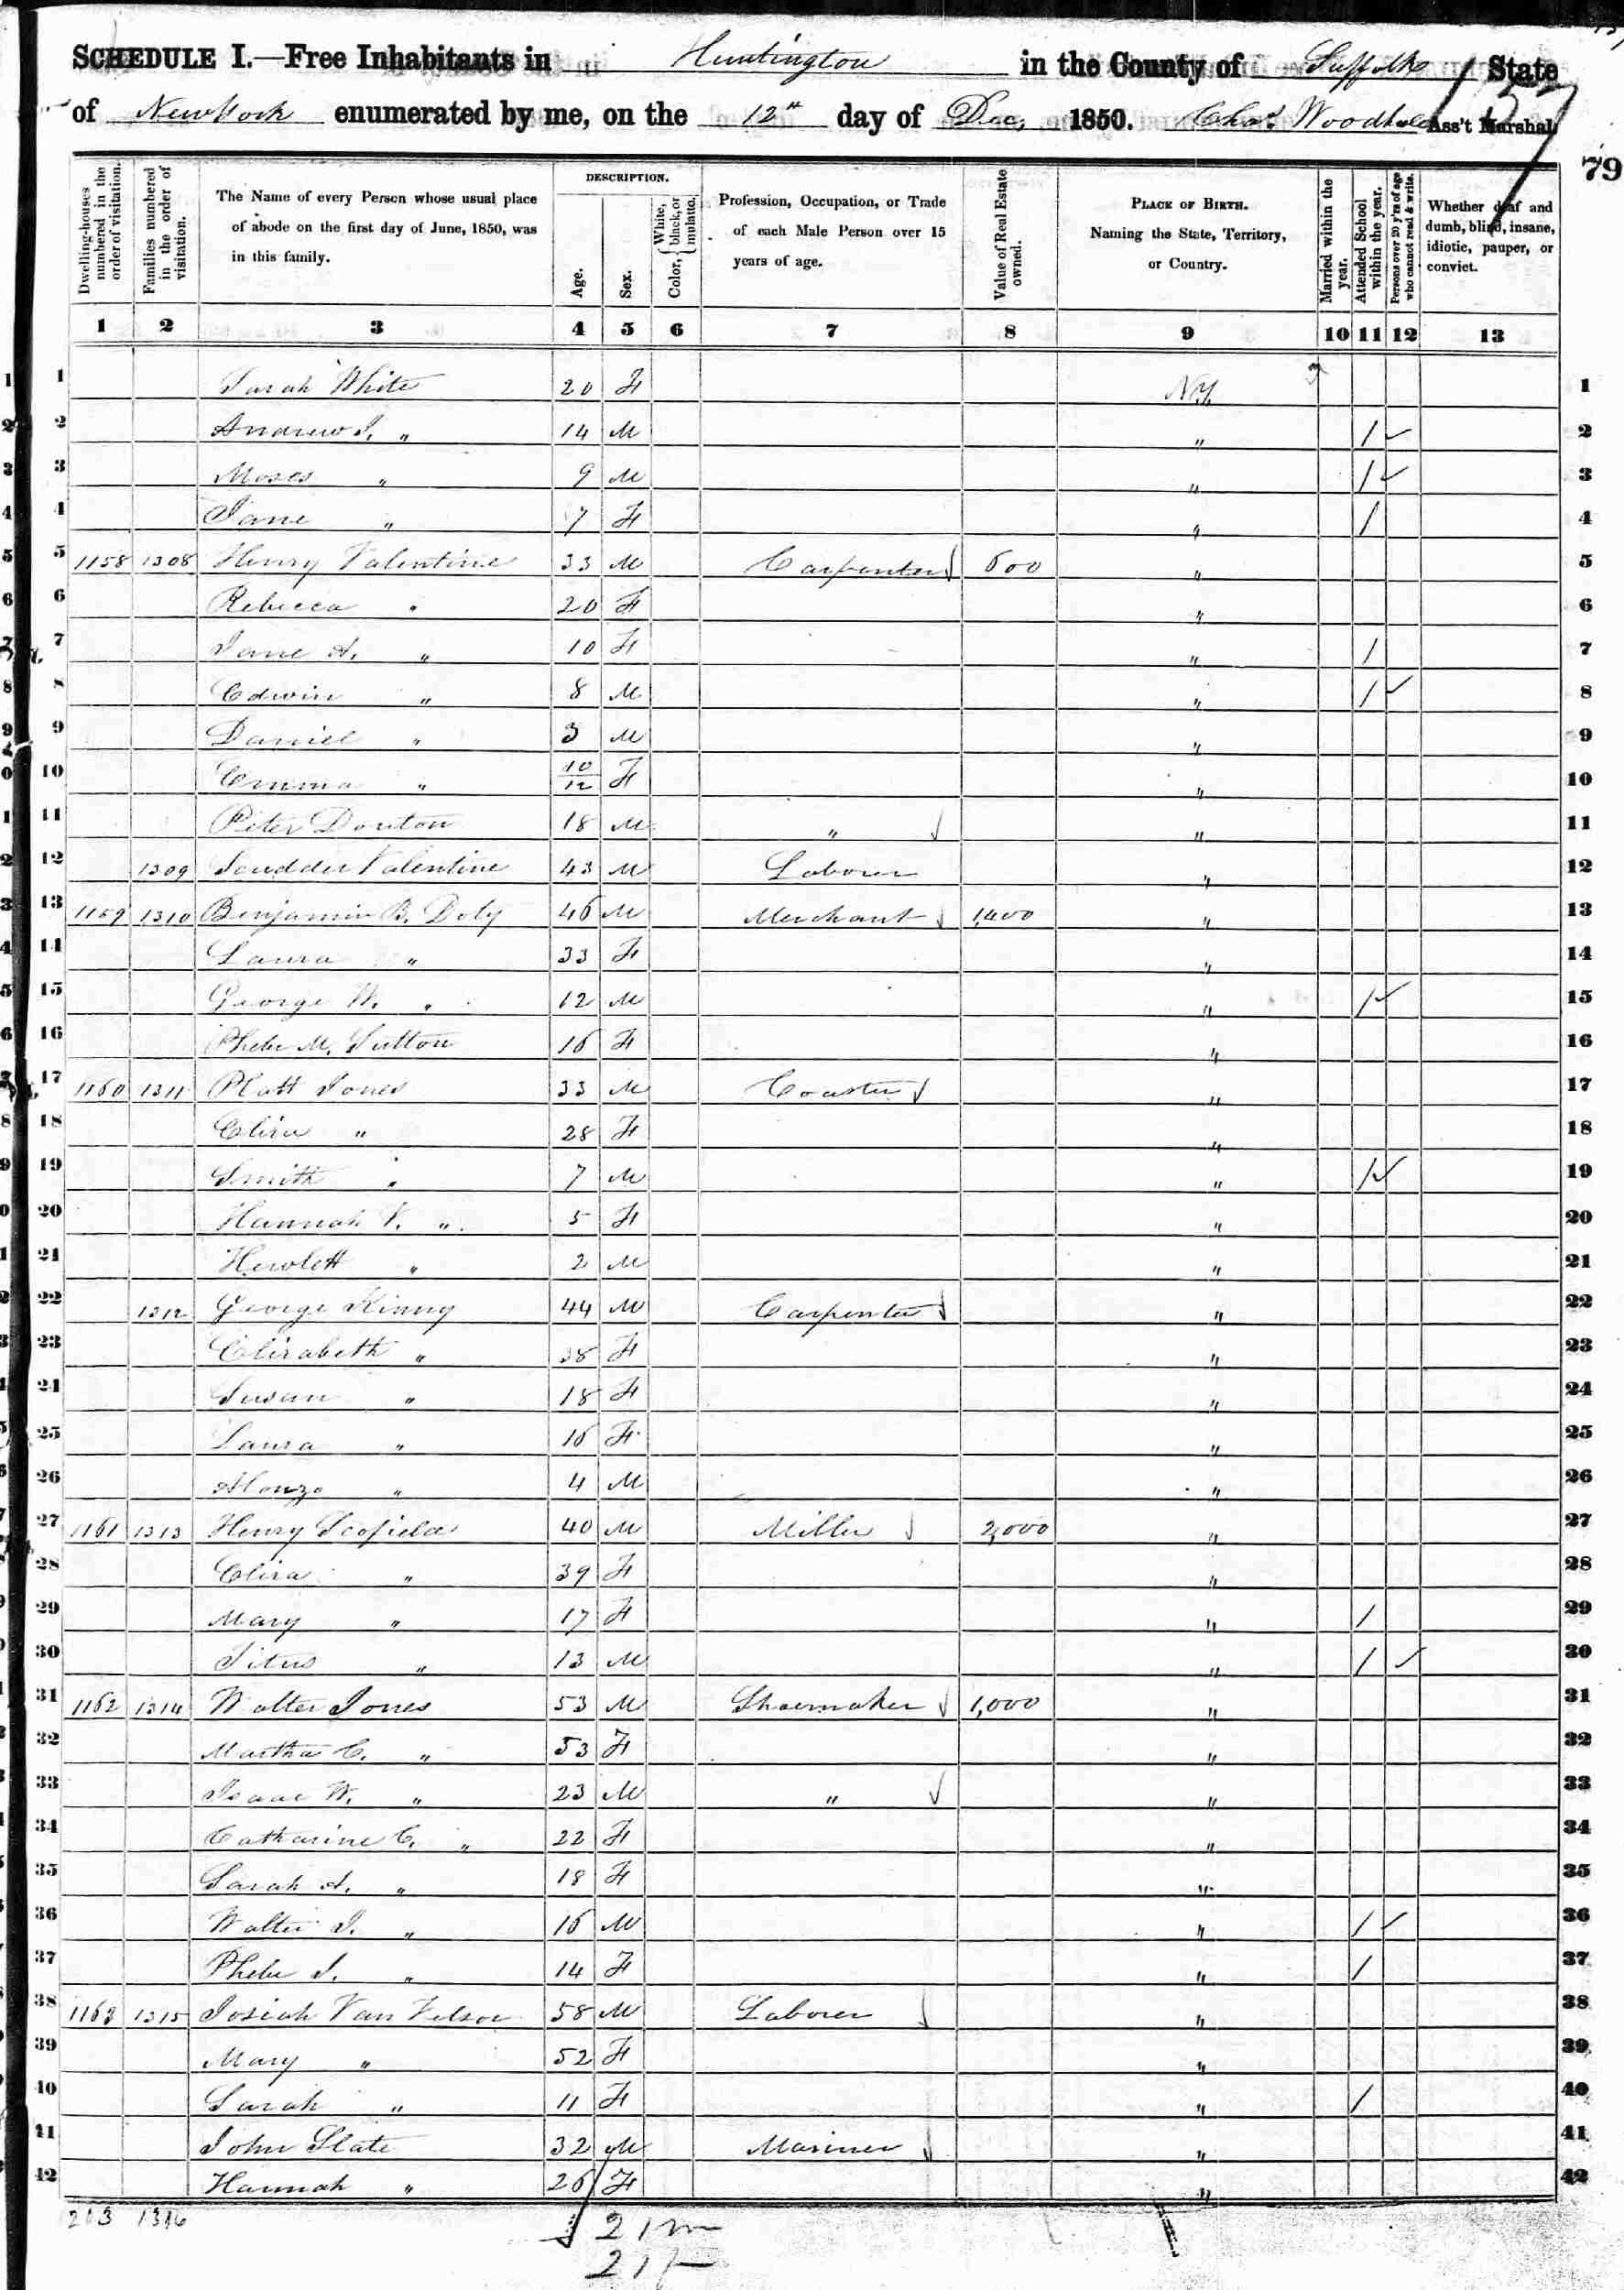 SCHEDULE I.—Free Inhabitants in Huntington in the County of Suffolk State
of New York enumerated by me, on the 12th day of Dec, 1850. Chas. Ass't Marshal
79
Dwelling-houses numbered in the order of visitation.
Families numbered in the order of visitation.
The Name of every Person whose usual place of abode on the first day of June, 1850, was in this family.
DESCRIPTION.
Age.
Sex.
Color, { White, black, or mulatto.
Profession, Occupation, or Trade of each Male Person over 15 years of age.
Value of Real Estate owned.
PLACE OF BIRTH. Naming the State, Territory, or Country.
Married within the year.
Attended School within the year.
Persons over 20 y'rs of age who cannot read & write.
Whether deaf and dumb, blind, insane, idiotic, pauper, or convict.
1 2 3 4 5 6 7 8 9 10 11 12 13
1 Sarah White 20 F N.Y. 1
2 Andrew J. " 14 M " / ✓ 2
3 Moses " 9 M " / ✓ 3
4 Jane " 7 F " / 4
5 1158 1308 Henry Valentine 33 M Carpenter 600 " 5
6 Rebecca " 20 F " 6
7 Jane A. " 10 F " / 7
8 Edwin " 8 M " / ✓ 8
9 Daniel " 3 M " 9
10 Emma " 10/12 F " 10
11 Peter Douton 18 M " " 11
12 1309 Scudder Valentine 43 M Laborer " 12
13 1159 1310 Benjamin B. Doty 46 M Merchant 1,400 " 13
14 Laura " 33 F " 14
15 George W. " 12 M " / ✓ 15
16 Phebe M. Sutton 16 F " 16
17 1160 1311 Platt Jones 33 M Coaster " 17
18 Eliza " 28 F " 18
19 Smith " 7 M " / ✓ 19
20 Hannah V. " 5 F " 20
21 Hewlett " 2 M " 21
22 1312 George Kinny 44 M Carpenter " 22
23 Elizabeth " 38 F " 23
24 Susan " 18 F " 24
25 Laura " 16 F " 25
26 Alonzo " 4 M " 26
27 1161 1313 Henry Scofield 40 M Miller 2,000 " 27
28 Eliza " 39 F " 28
29 Mary " 17 F " / 29
30 Titus " 13 M " / ✓ 30
31 1162 1314 Walter Jones 53 M Shoemaker 1,000 " 31
32 Martha C. " 53 F " 32
33 Isaac W. " 23 M " " 33
34 Catharine C. " 22 F " 34
35 Sarah A. " 18 F " 35
36 Walter J. " 16 M " / ✓ 36
37 Phebe J. " 14 F " / 37
38 1163 1315 Josiah Van Velsor 58 M Laborer " 38
39 Mary " 52 F " 39
40 Sarah " 11 F " / 40
41 John Slate 32 M Mariner " 41
42 Hannah " 26 F " 42
21 m
21 f